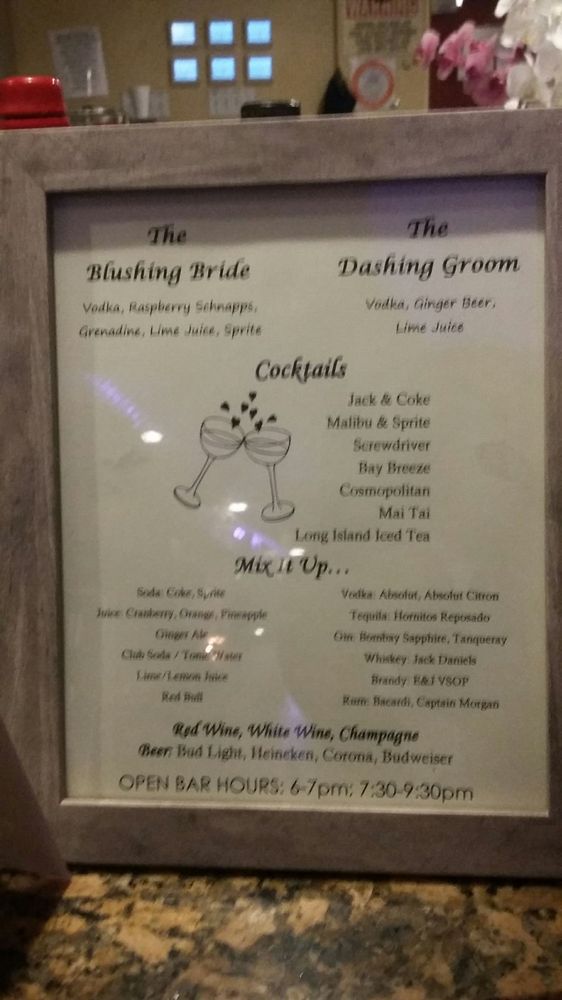 The
Blushing Bride
Vodka, Raspberry Schnapps,
Grenadine, Lime Juice, Sprite
The
Dashing Groom
Vodka, Ginger Beer,
Lime Juice
Cocktails
Jack & Coke
Malibu & Sprite
Screwdriver
Bay Breeze
Cosmopolitan
Mai Tai
Long Island Iced Tea
Mix It Up...
Soda: Coke, Sprite
Juice: Cranberry, Orange, Pineapple
Ginger Ale
Club Soda / Tonic Water
Lime/Lemon Juice
Red Bull
Vodka: Absolut, Absolut Citron
Tequila: Hornitos Reposado
Gin: Bombay Sapphire, Tanqueray
Whiskey: Jack Daniels
Brandy: E&J VSOP
Rum: Bacardi, Captain Morgan
Red Wine, White Wine, Champagne
Beer: Bud Light, Heineken, Corona, Budweiser
OPEN BAR HOURS: 6-7pm; 7:30-9:30pm